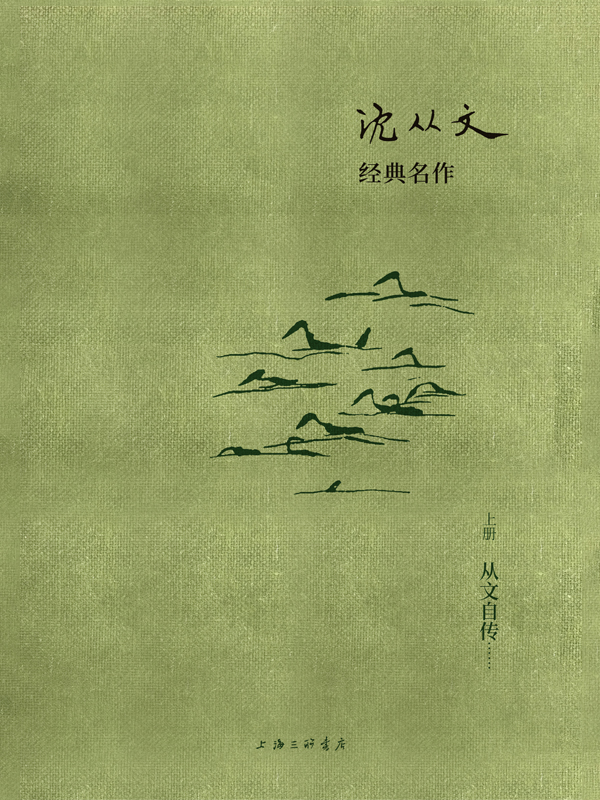 沈从文
经典名作
上册
从文自传……
上海三联书店